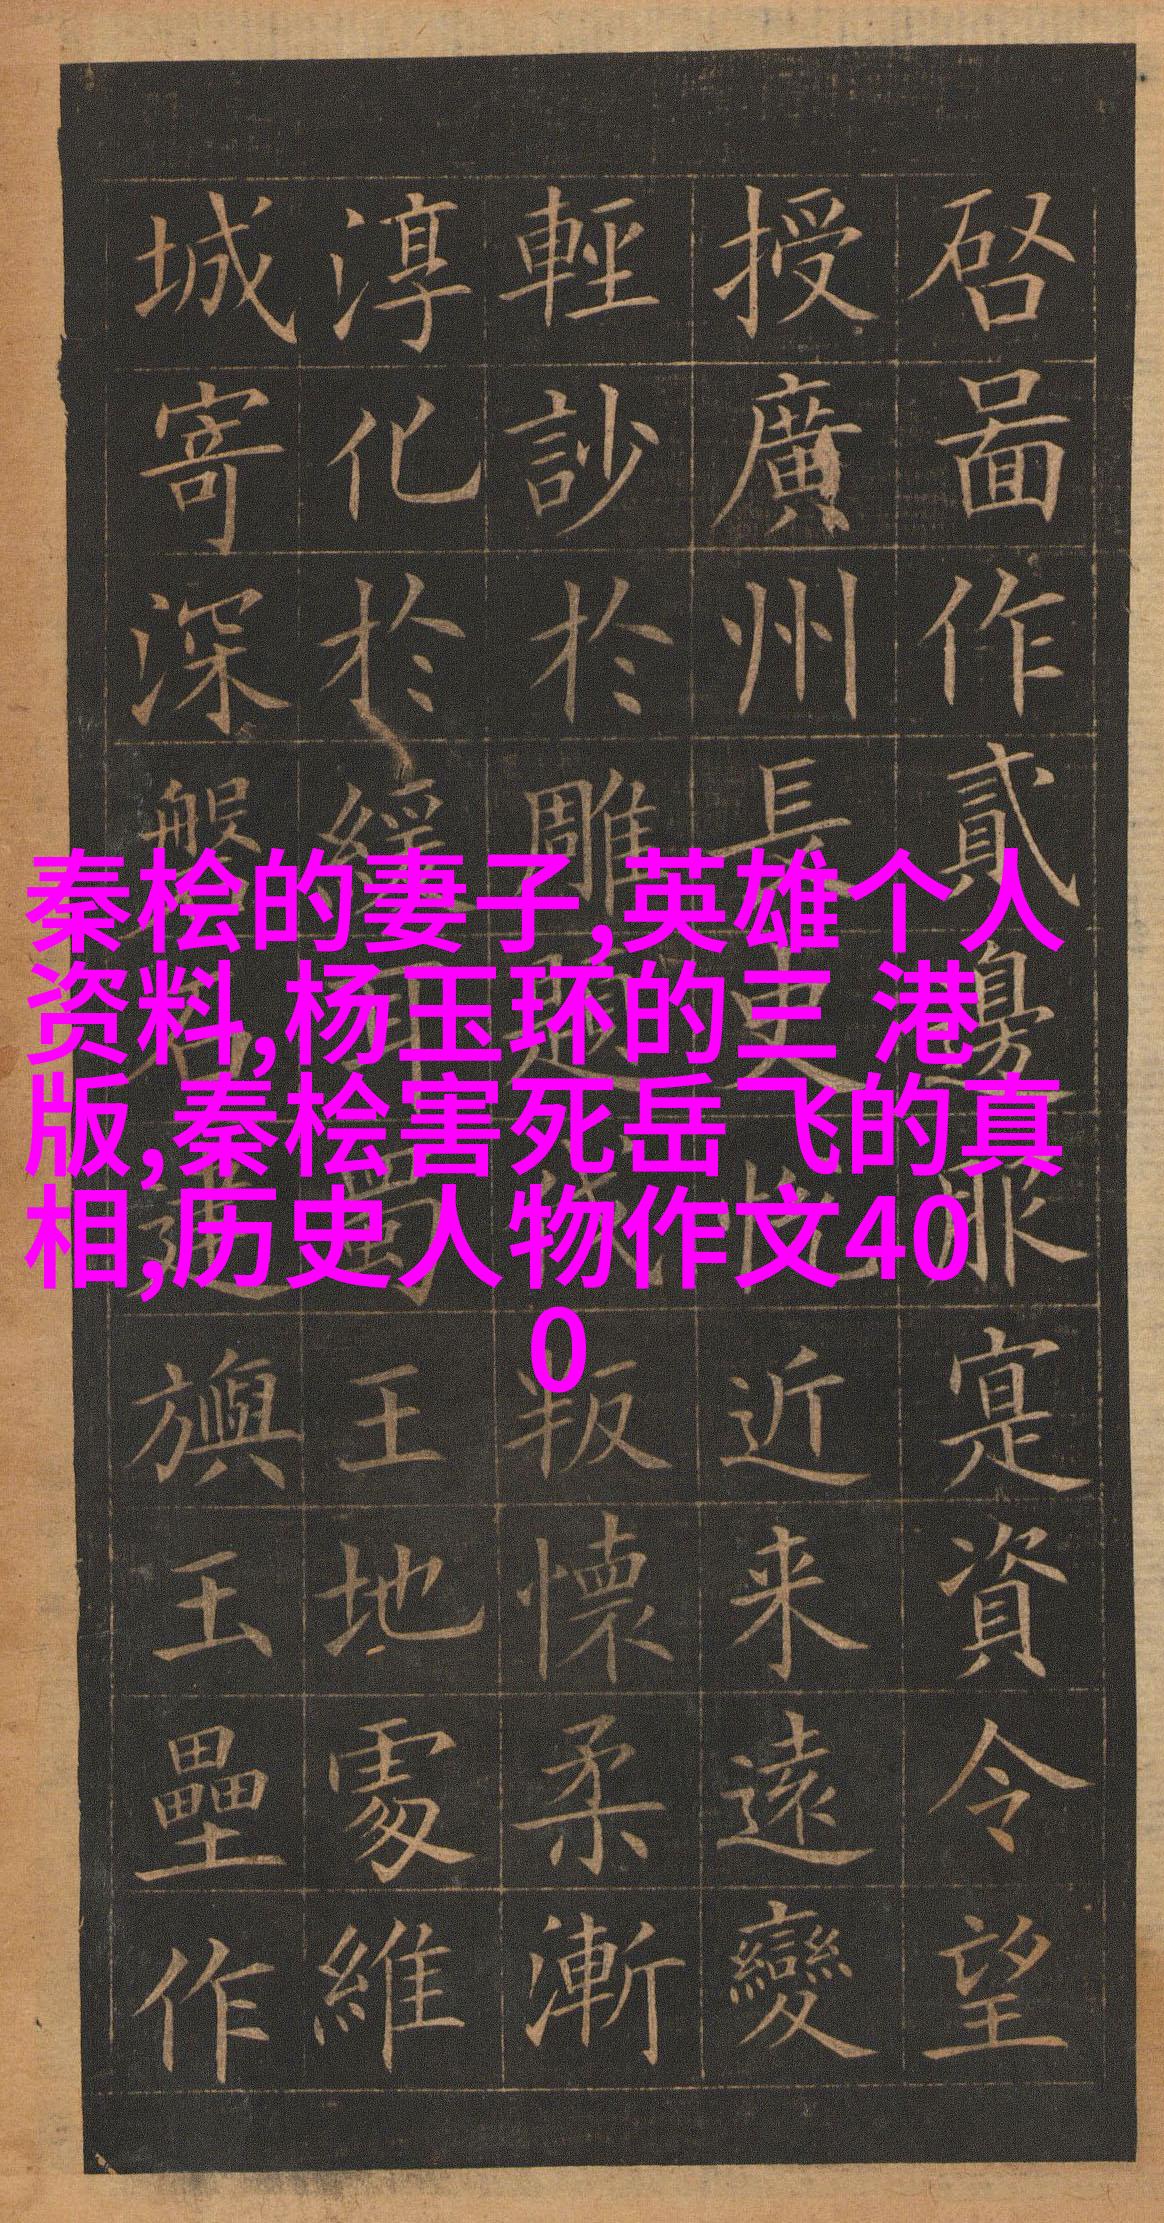 秦桧的妻子,英雄个人
资料,杨玉环的三 港
版,秦桧害死岳 飞的真
相,历史人物作文40
0
啓啚作貳邊服寔資令望
授廣州長史悅近来遠變
輕訬於雕題叛懷柔漸
淳化於緩耳蜀王地處維
城寄深盤石建旟玉壘作